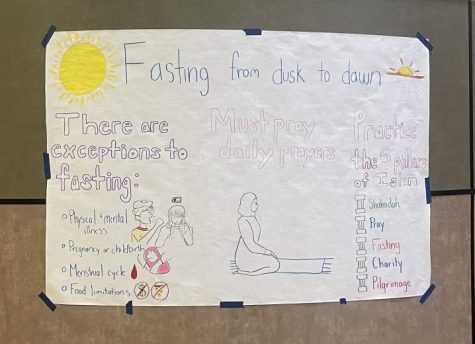 Fasting from dusk to dawn
There are
exceptions to
fasting:
Physical & mental
illness
Pregnancy or childbirth
Menstrual cycle
Food limitations
Must pray
daily prayers
Practice
the 5 pillars
of Islam
Shahadah
Pray
Fasting
Charity
Pilgrimage